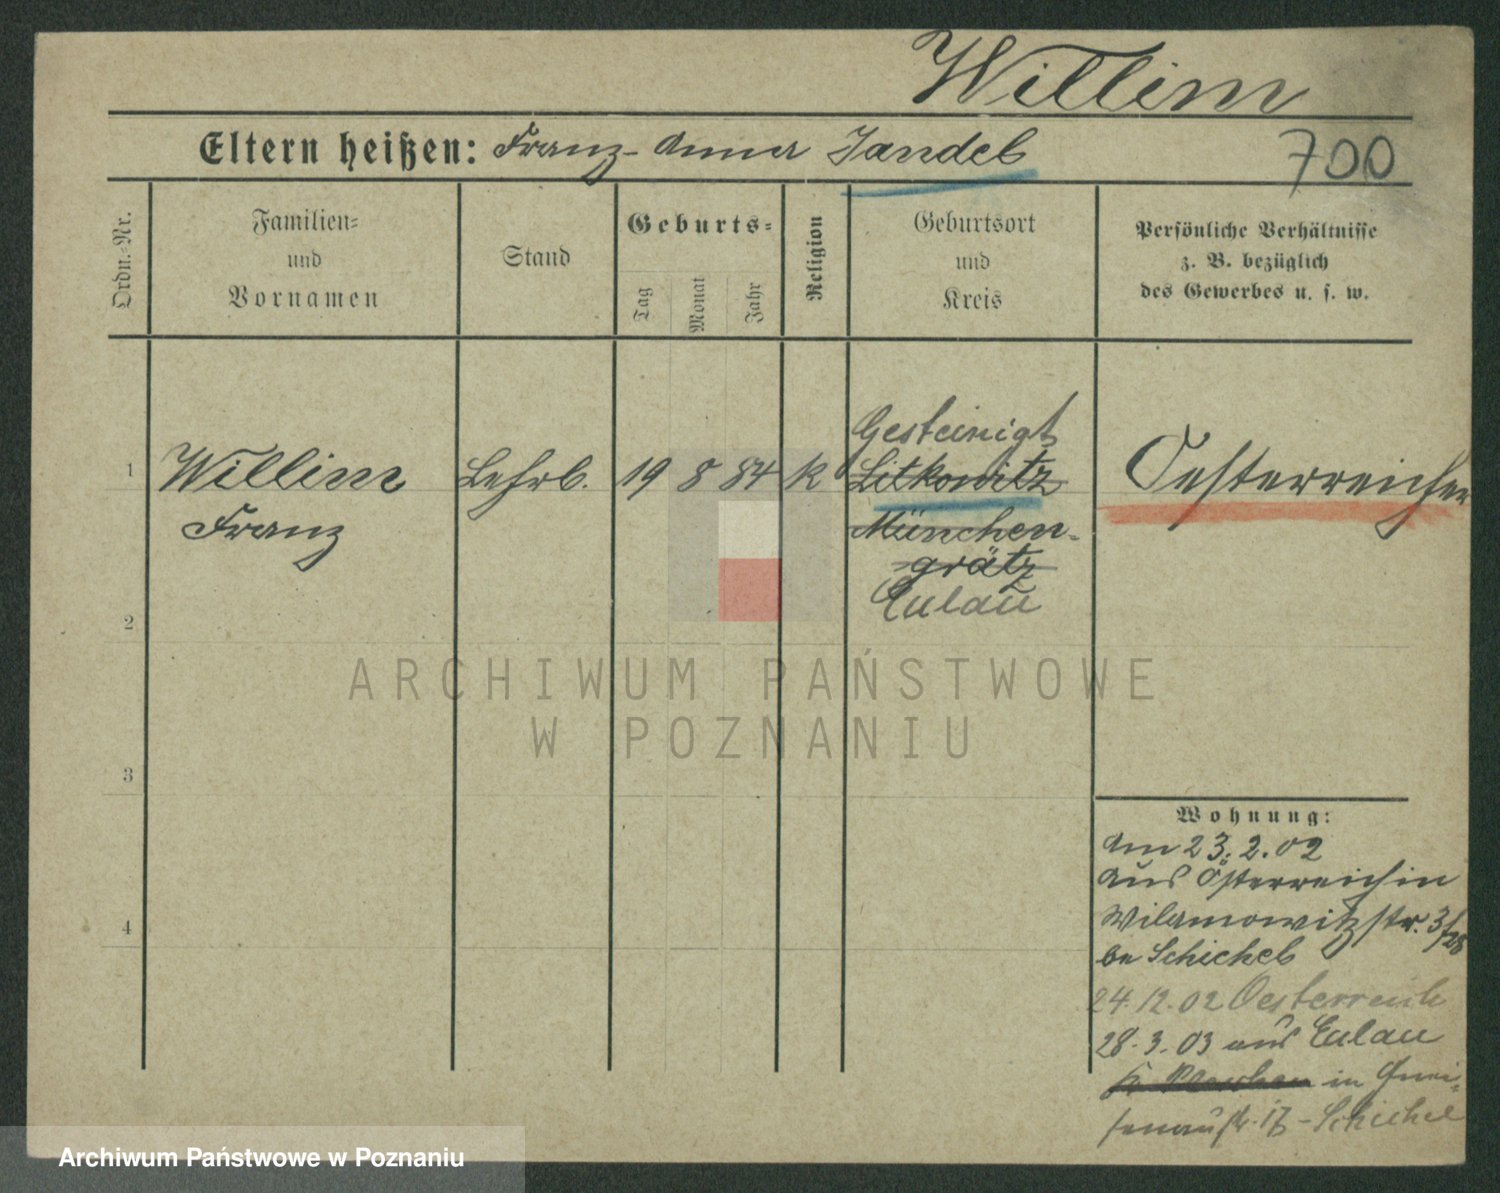 Willim
Eltern heißen: Franz - Anna Jandeb
700
Ordn.-Nr.
Familien-
und
Vornamen
Stand
Geburts-
Tag
Monat
Jahr
Religion
Geburtsort
und
Kreis
Persönliche Verhältnisse
z. B. bezüglich
des Gewerbes u. s. w.
Gesteinigt
1 Willim Lehrb. 19 8 84 k Litkowitz Oesterreicher
Franz München-
grätz
Eulau
2
ARCHIWUM PAŃSTWOWE
W POZNANIU
3
Wohnung:
Am 23.2.02
aus Österreich in
Wilamowitzstr. 3/
be Schicheb
4
24.12.02 Oesterreich
28.3.03 aus Eulau
in Gnei-
senaustr. - Schichel
Archiwum Państwowe w Poznaniu